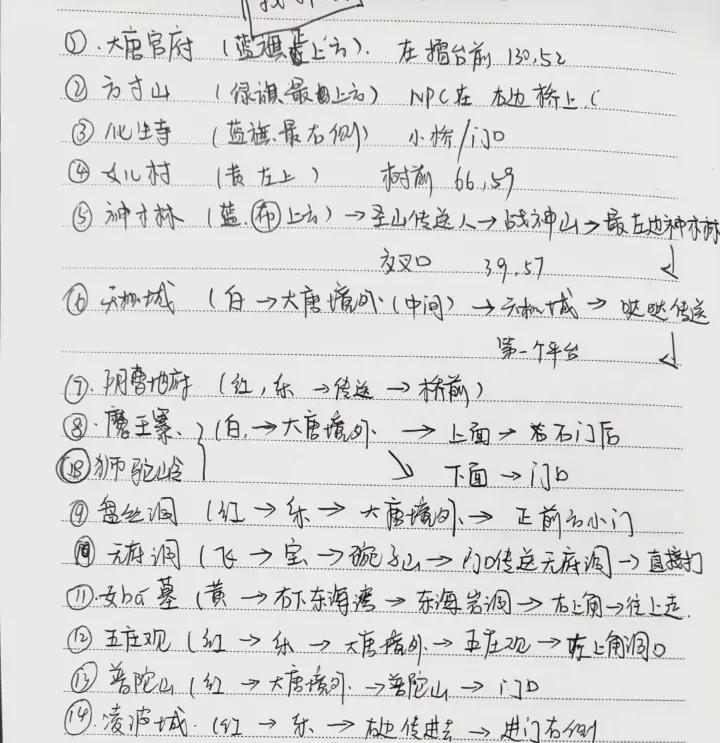 ① 大唐官府 (蓝旗 上方). 在擂台前 130,52
② 方寸山 (绿旗最 上方) NPC在 右边桥上 (
③ 化生寺 (蓝旗.最右侧) 小桥/门口
④ 女儿村 (黄左上) 树前 66,59
⑤ 神木林 (蓝.布上方) → 圣山传送人 → 战神山 → 最左边神木林
交叉口 39,57
⑥ 天机城 (白 → 大唐境外 (中间) → 天机城 → 哒哒传送
第一个平台
⑦. 阴曹地府 (红, 乐 → 传送 → 桥前)
⑧. 魔王寨. (白, → 大唐境外 → 上面 → 右石门后
⑱ 狮驼岭 下面 → 门口
⑨ 盘丝洞 (红 → 乐 → 大唐境外 → 正前方小门
⑩ 无底洞 (飞 → 宝 → 碗子山 → 门口传送无底洞 → 直接打
⑪. 女ba墓 (黄 → 右下东海湾 → 东海岩洞 → 右上角 → 往上走.
⑫ 五庄观 (红 → 乐 → 大唐境外 → 五庄观 → 左上角洞口
⑬ 普陀山 (红 → 大唐境外. → 普陀山 → 门口
⑭. 凌波城. (红 → 乐. → 右边传进去 → 进门右侧